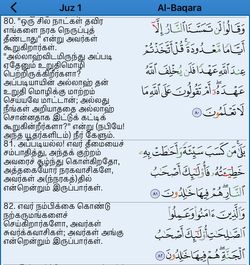 Juz 1
Al-Baqara
80. "ஒரு சில நாட்கள் தவிர
எங்களை நரக நெருப்புத்
தீண்டாது" என்று அவர்கள்
கூறுகிறார்கள்.
"அல்லாஹ்விடமிருந்து அப்படி
ஏதேனும் உறுதிமொழி
பெற்றிருக்கிறீர்களா?
அப்படியாயின் அல்லாஹ் தன்
உறுதி மொழிக்கு மாற்றம்
செய்யவே மாட்டான்; அல்லது
நீங்கள் அறியாததை அல்லாஹ்
சொன்னதாக இட்டுக் கட்டிக்
கூறுகின்றீர்களா?" என்று (நபியே!
அந்த யூதர்களிடம்) நீர் கேளும்.
81. அப்படியல்ல! எவர் தீமையைச்
சம்பாதித்து, அந்தக் குற்றம்
அவரைச் சூழ்ந்து கொள்கிறதோ,
அத்தகையோர் நரகவாசிகளே,
அவர்கள் அ(ந்நரகத்)தில்
என்றென்றும் இருப்பார்கள்.
82. எவர் நம்பிக்கை கொண்டு
நற்கருமங்களைச்
செய்கிறார்களோ, அவர்கள்
சுவர்க்கவாசிகள்; அவர்கள் அங்கு
என்றென்றும் இருப்பார்கள்.
وَقَالُوا۟ لَن تَمَسَّنَا ٱلنَّارُ إِلَّآ
أَيَّامًا مَّعْدُودَةً قُلْ أَتَّخَذْتُمْ
عِندَ ٱللَّهِ عَهْدًا فَلَن يُخْلِفَ ٱللَّهُ
عَهْدَهُۥٓ أَمْ تَقُولُونَ عَلَى ٱللَّهِ مَا
لَا تَعْلَمُونَ ٨٠
بَلَىٰ مَن كَسَبَ سَيِّئَةً وَأَحَٰطَتْ بِهِۦ
خَطِيٓـَٔتُهُۥ فَأُو۟لَٰٓئِكَ أَصْحَٰبُ
ٱلنَّارِ هُمْ فِيهَا خَٰلِدُونَ ٨١
وَٱلَّذِينَ ءَامَنُوا۟ وَعَمِلُوا۟
ٱلصَّٰلِحَٰتِ أُو۟لَٰٓئِكَ أَصْحَٰبُ
ٱلْجَنَّةِ هُمْ فِيهَا خَٰلِدُونَ ٨٢